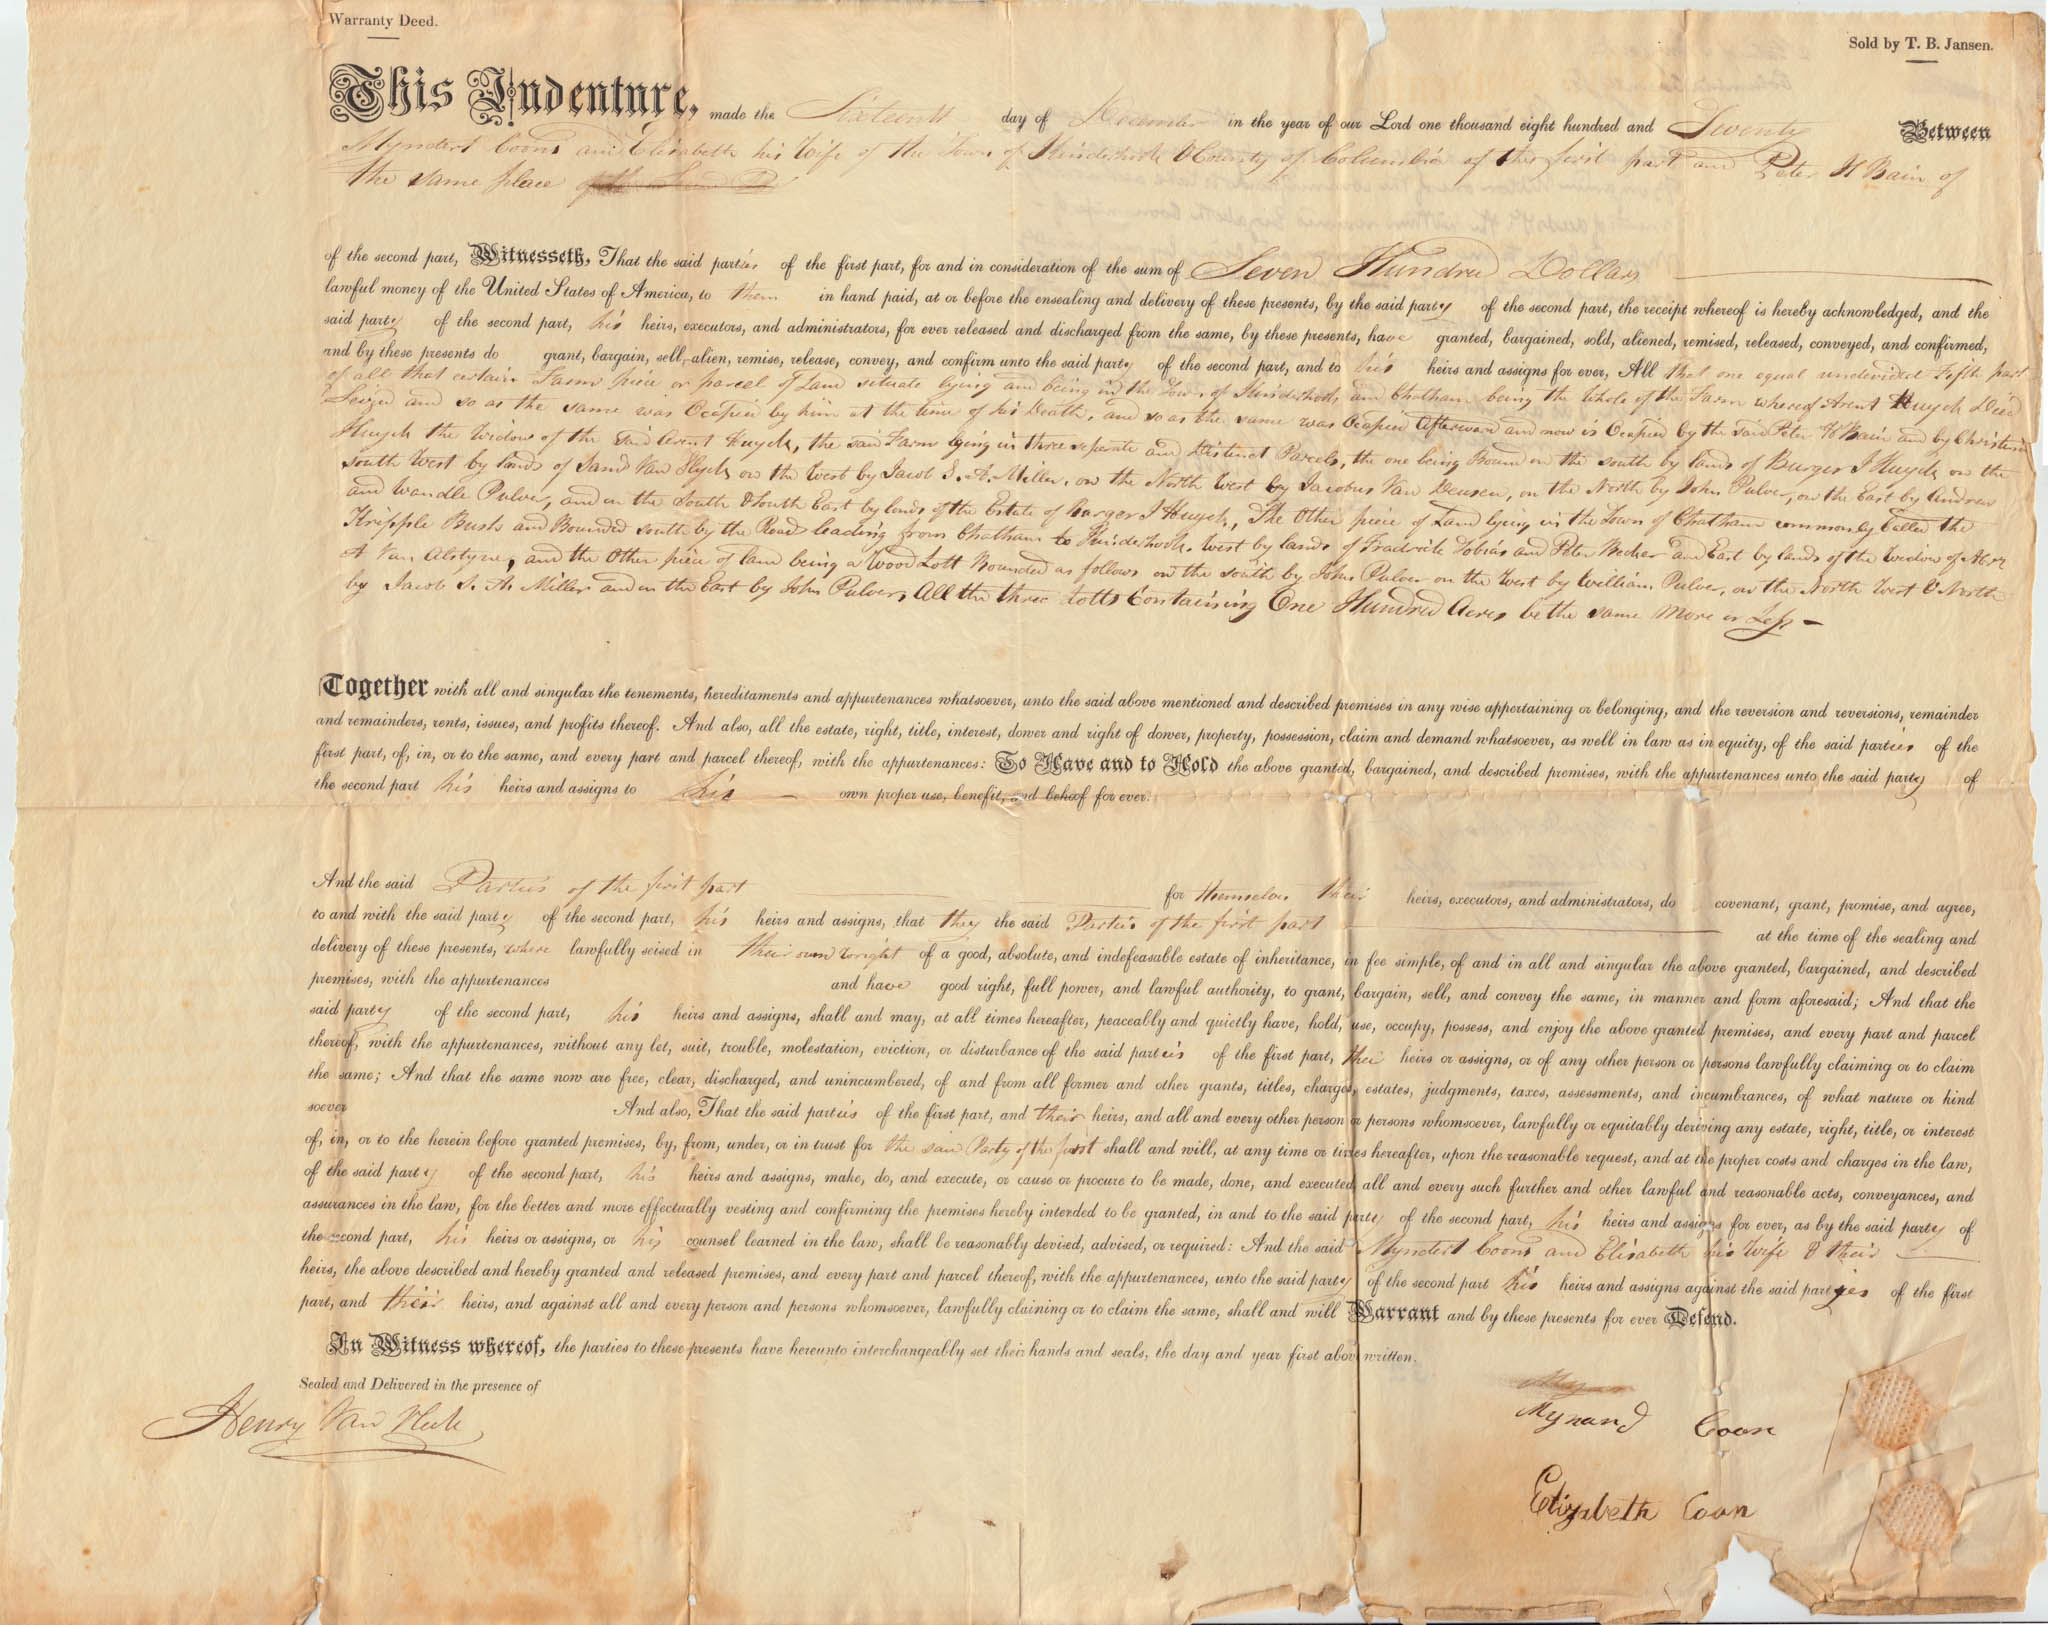 Warranty Deed.
Sold by T. B. Jansen.
This Indenture, made the Sixteenth day of December in the year of our Lord one thousand eight hundred and Twenty Between
Myndert Coons and Elisabeth his Wife of the Town of Kinderhook & County of Columbia of the first part and Peter H Bain of
the same place
of the second part, Witnesseth, That the said parties of the first part, for and in consideration of the sum of Seven Hundred Dollars
lawful money of the United States of America, to them in hand paid, at or before the ensealing and delivery of these presents, by the said party of the second part, the receipt whereof is hereby acknowledged, and the
said party of the second part, his heirs, executors, and administrators, for ever released and discharged from the same, by these presents, have granted, bargained, sold, aliened, remised, released, conveyed, and confirmed,
and by these presents do grant, bargain, sell, alien, remise, release, convey, and confirm unto the said party of the second part, and to his heirs and assigns for ever, All that one equal undivided Fifth part
of all that certain Farm piece or parcel of Land situate lying and being in the Town of Kinderhook and Chatham being the whole of the Farm whereof Arent Huyck Died
Seized and so as the same was Ocapied by him at the time of his Death, and so as the same was Ocapied Afterward and now is Ocapied by the said Peter H Bain and by Christina
Huyck the Widow of the said Arent Huyck, the said Farm lying in three seperate and Distinct Parcels, the one being Bound on the south by lands of Burger J Huyck on the
south West by lands of Sand Van Huyck on the West by Jacob S. A. Miller, on the North West by Jacobus Van Deusen, on the North by John Pulver, on the East by Andrew
and Wandle Pulver, and on the South & South East by lands of the Estate of Burger J Huyck, The Other piece of Land lying in the Town of Chatham commonly Called the
Kripple Bush and Bounded south by the Road leading from Chatham to Kinderhook, West by lands of Fradrick Tobias and Peter Becker and East by lands of the Widow of Abm
A Van Alstyne, and the Other piece of land being a Wood Lott Bounded as follows on the south by John Pulver on the West by William Pulver, on the North West & North
by Jacob S. A. Miller and on the East by John Pulver, All the three Lotts Containing One Hundred Acres be the same More or Less
Together with all and singular the tenements, hereditaments and appurtenances whatsoever, unto the said above mentioned and described premises in any wise appertaining or belonging, and the reversion and reversions, remainder
and remainders, rents, issues, and profits thereof. And also, all the estate, right, title, interest, dower and right of dower, property, possession, claim and demand whatsoever, as well in law as in equity, of the said parties of the
first part, of, in, or to the same, and every part and parcel thereof, with the appurtenances: To Have and to Hold the above granted, bargained, and described premises, with the appurtenances unto the said party of
the second part his heirs and assigns to his own proper use, benefit, and behoof for ever.
And the said Parties of the first part for themselves their heirs, executors, and administrators, do covenant, grant, promise, and agree,
to and with the said party of the second part, his heirs and assigns, that they the said Parties of the first part at the time of the sealing and
delivery of these presents, where lawfully seised in their own wright of a good, absolute, and indefeasable estate of inheritance, in fee simple, of and in all and singular the above granted, bargained, and described
premises, with the appurtenances and have good right, full power, and lawful authority, to grant, bargain, sell, and convey the same, in manner and form aforesaid; And that the
said party of the second part, his heirs and assigns, shall and may, at all times hereafter, peaceably and quietly have, hold, use, occupy, possess, and enjoy the above granted premises, and every part and parcel
thereof, with the appurtenances, without any let, suit, trouble, molestation, eviction, or disturbance of the said parties of the first part, their heirs or assigns, or of any other person or persons lawfully claiming or to claim
the same; And that the same now are free, clear, discharged, and unincumbered, of and from all former and other grants, titles, charges, estates, judgments, taxes, assessments, and incumbrances, of what nature or kind
soever And also, That the said parties of the first part, and their heirs, and all and every other person or persons whomsoever, lawfully or equitably deriving any estate, right, title, or interest
of, in, or to the herein before granted premises, by, from, under, or in trust for the said Party of the first shall and will, at any time or times hereafter, upon the reasonable request, and at the proper costs and charges in the law,
of the said party of the second part, his heirs and assigns, make, do, and execute, or cause or procure to be made, done, and executed all and every such further and other lawful and reasonable acts, conveyances, and
assurances in the law, for the better and more effectually vesting and confirming the premises hereby intended to be granted, in and to the said party of the second part, his heirs and assigns for ever, as by the said party of
the second part, his heirs or assigns, or his counsel learned in the law, shall be reasonably devised, advised, or required: And the said Myndert Coons and Elisabeth his Wife & their
heirs, the above described and hereby granted and released premises, and every part and parcel thereof, with the appurtenances, unto the said party of the second part his heirs and assigns against the said partyies of the first
part, and their heirs, and against all and every person and persons whomsoever, lawfully claiming or to claim the same, shall and will Warrant and by these presents for ever Defend.
In Witness whereof, the parties to these presents have hereunto interchangeably set their hands and seals, the day and year first above written.
Sealed and Delivered in the presence of
Henry Van Vleck
Mynard Coon
Elizabeth Coon